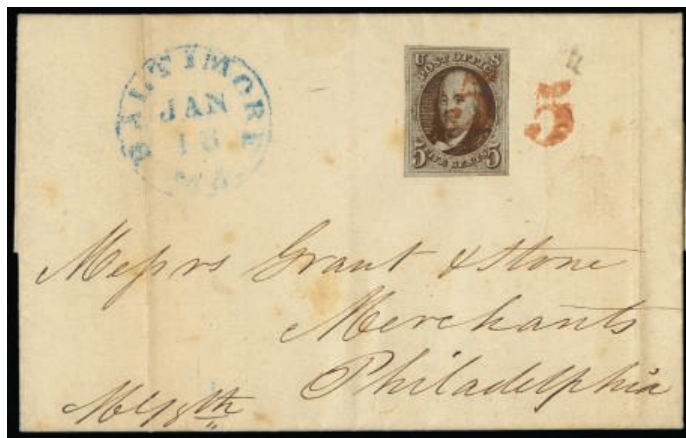 BALTIMORE
JAN
16
Md.
U S
POST OFFICE
5 FIVE CENTS 5
5
Messrs Grant & Stone
Merchants
Philadelphia